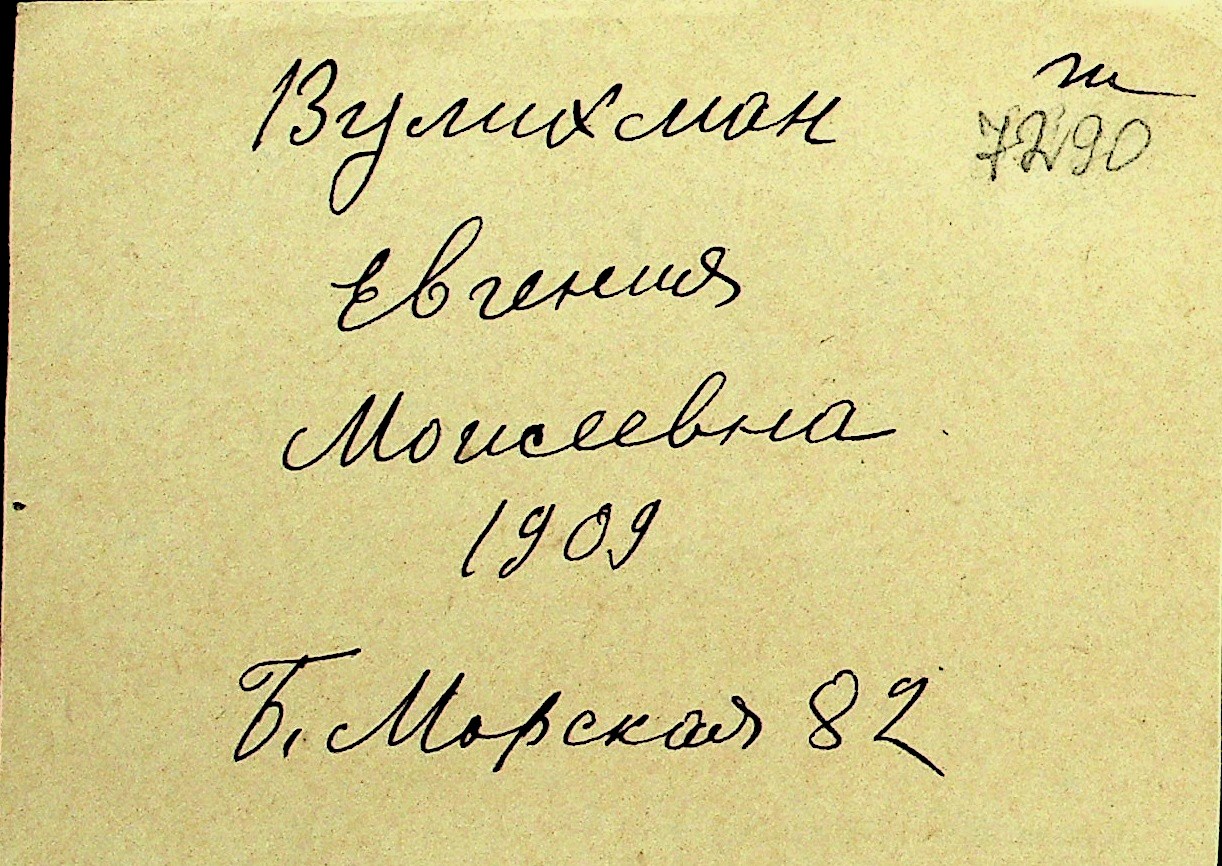 Вулихман
7290
Евгения
Моисеевна
1909
Б. Морская 82